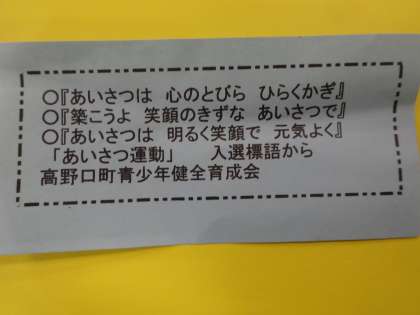 〇『あいさつは 心のとびら ひらくかぎ』
〇『築こうよ 笑顔のきずな あいさつで』
〇『あいさつは 明るく笑顔で 元気よく』
「あいさつ運動」 入選標語から
高野口町青少年健全育成会